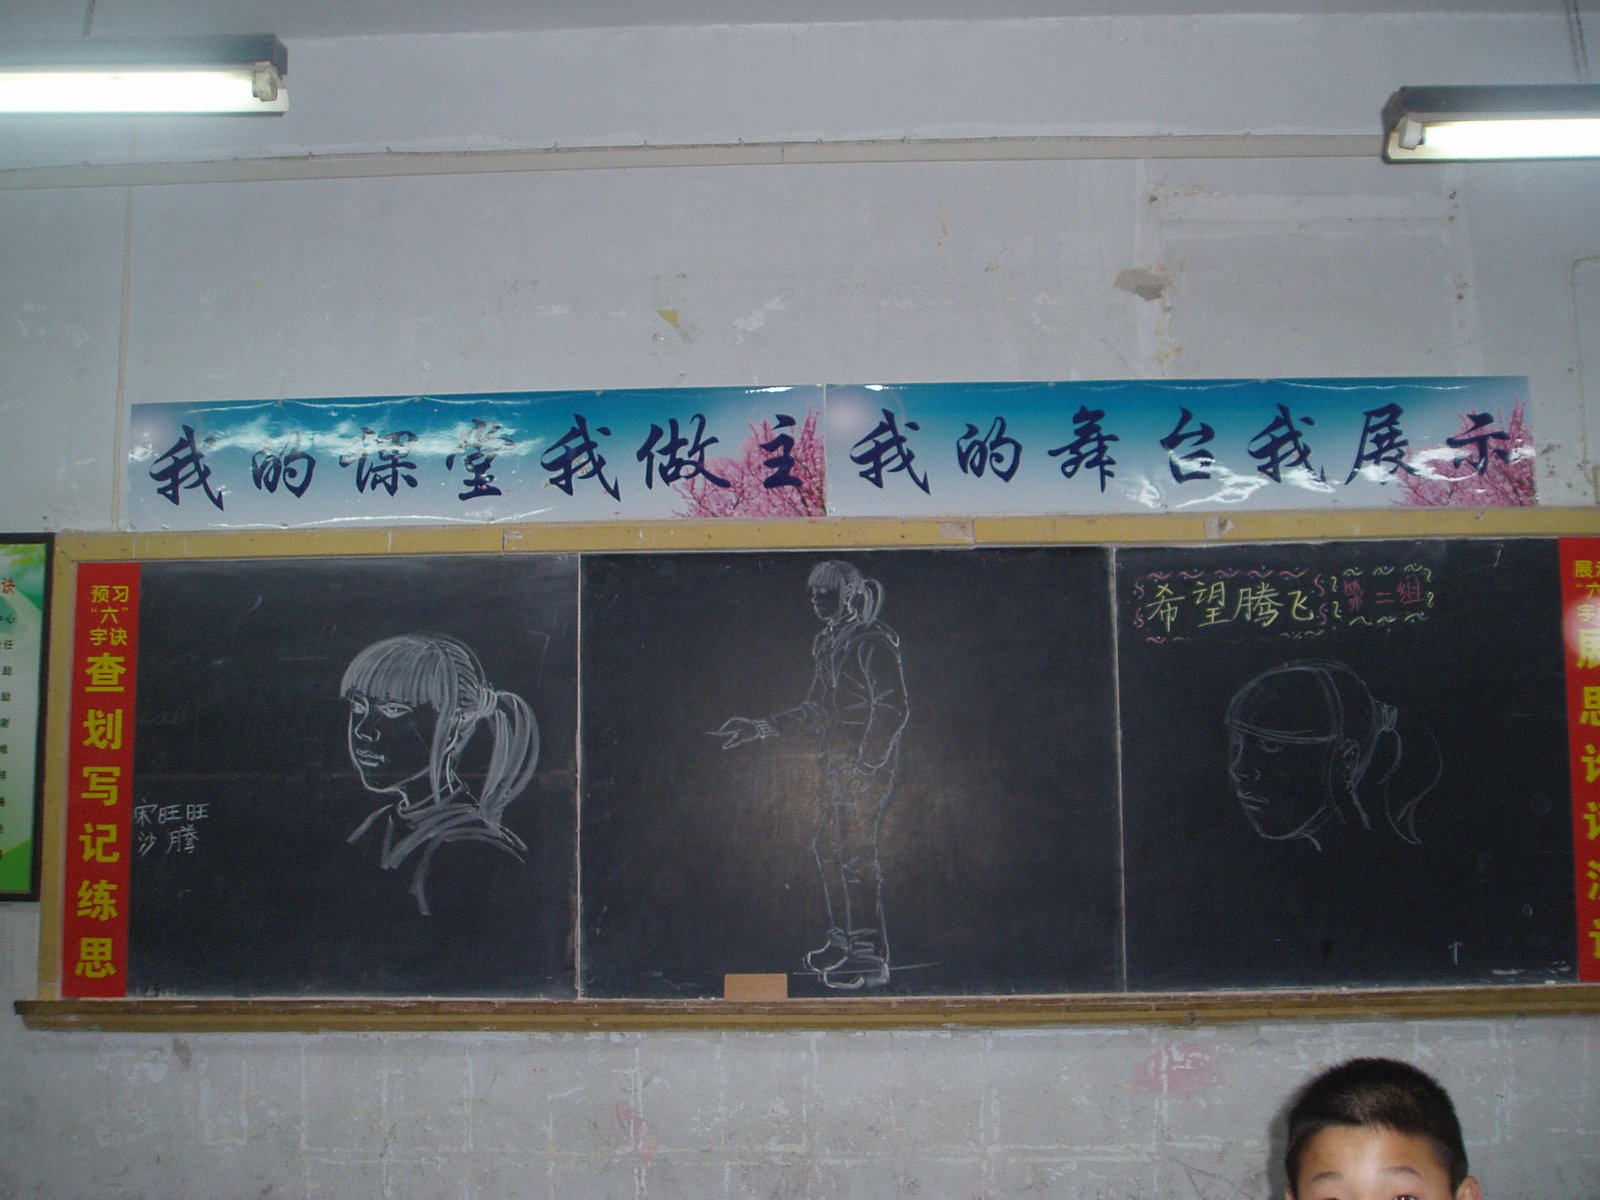 我的课堂我做主
我的舞台我展示
诀
预习
“六”
字诀
查
划
写
记
练
思
宋旺旺
沙腾
希望腾飞
第二组
展
“六
字
展
思